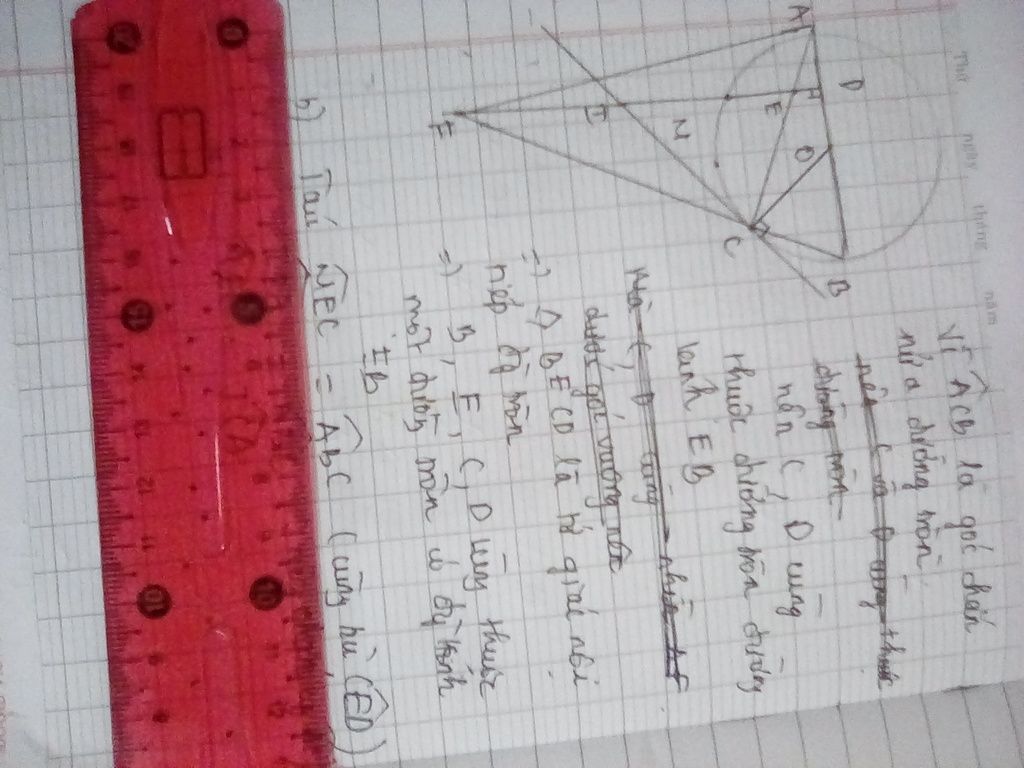 Thứ ngày tháng năm
A
D
F
E
O
B
I
N
C
E
Vì ACB là góc chắn
nửa đường tròn
nên C và D cùng thuộc
đường tròn
nên C, D cùng
thuộc đường tròn đường
kính EB
Mà C, D cùng nhìn
dưới góc vuông nên
=) ◊ BECD là tứ giác nội
tiếp đg tròn
=) B, E, C, D cùng thuộc
một đường tròn có đg kính
EB
b) Ta có NEC = ABC (cùng bù CED)